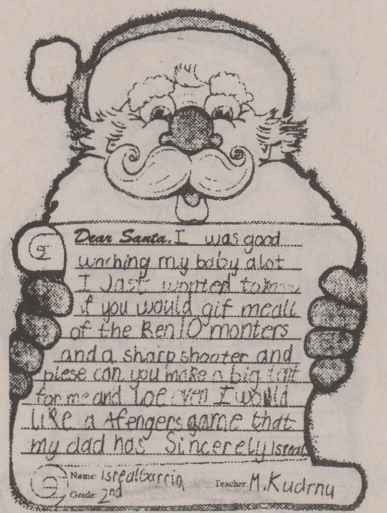 Dear Santa, I was good
waching my baby alot
I Jast wonted to
if you would gif me all
of the Ben 10 monters
and a sharp shooter and
plese can you make a big
for me and I would
like a Afengers game that
my dad has Sincerely, Isreal
Name: Isreal Garcia
Grade: 2nd
Teacher M. Kudrnu